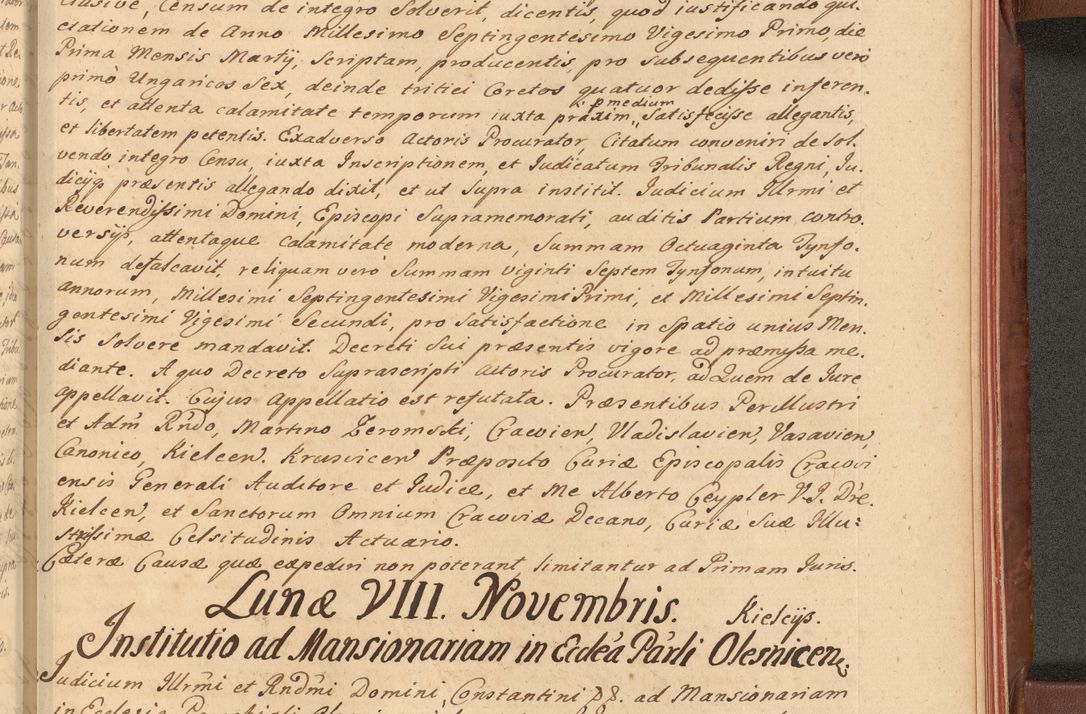 clusive, Censum de integro Solverit, dicentis, quod iustificando qui-
ctationem de Anno Millesimo Septingentesimo Vigesimo Primo, die
Prima Mensis Martij, Scriptam, producentis, pro Subsequentibus vero
primò Ungaricos Sex, deinde tritici Coretos quatuor dedisse inferen-
tis, et attenta calamitate temporum iuxta p medium praxim, Satisfecisse allegantis,
et libertatem petentis. Exadverso Actoris Procurator, Citatum conveniri de Sol-
vendo integro Censu, iuxta Inscriptionem, et Iudicatum Tribunalis Regni, Iu-
dicijqs præsentis allegando dixit, et ut Supra institit. Iudicium Illrmi et
Reverendissimi Domini, Episcopi Supramemorati, auditis Partium contro-
versijs, attentaque calamitate moderna, Summam Octuaginta Tynfo-
num defalcavit, reliquam verò Summam viginti Septem Tynfonum, intuitu
annorum, Millesimi Septingentesimi Vigesimi Primi, et Millesimi Septin-
gentesimi Vigesimi Secundi, pro Satisfactione in Spatio unius Men-
sis Solvere mandavit. Decreti Sui præsentis vigore ad præmissa me-
diante. A quo Decreto Suprascripti Actoris Procurator, ad Quem de Iure
appellavit. Cujus Appellatio est refutata. Præsentibus Perillustri
et Adm Rndo, Martino Zeromski, Cracovien, Vladislavien, Varsavien,
Canonico, Kielcen. Krusvicen Præposito Curiæ Episcopalis Cracovi
ensis Generali Auditore et Iudice, et Me Alberto Ceypler V.I. Dre.
Kielcen, et Sanctorum Omnium Cracoviæ Decano, Curiæ Suæ Illu-
strissimæ Celsitudinis Actuario.
Cæteræ Causæ quæ expediri non poterant limitantur ad Primam Iuris.
Lunæ VIII. Novembris. Kielcijs.
Institutio ad Mansionariam in Ecclea Parli Olesnicen.
Iudicium Illrmi et Rndmi Domini Constantini &. ad Mansionariam
in Ecclesia Parochiali